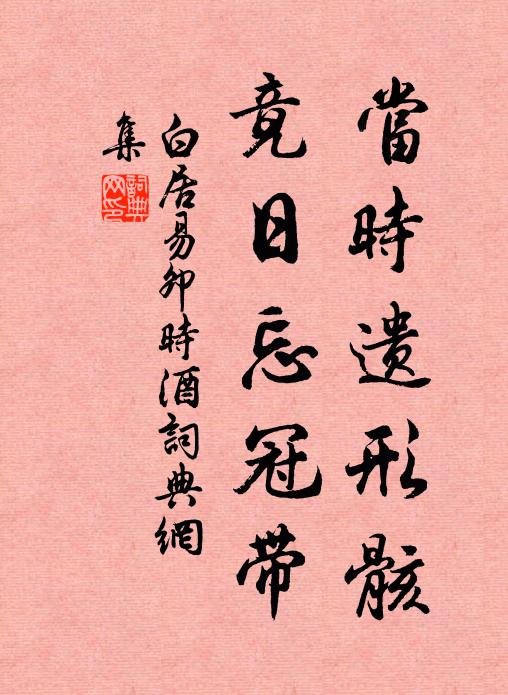 當時遺形骸
竟日忘冠帶
白居易卯時酒詞典網
集
詞典網印